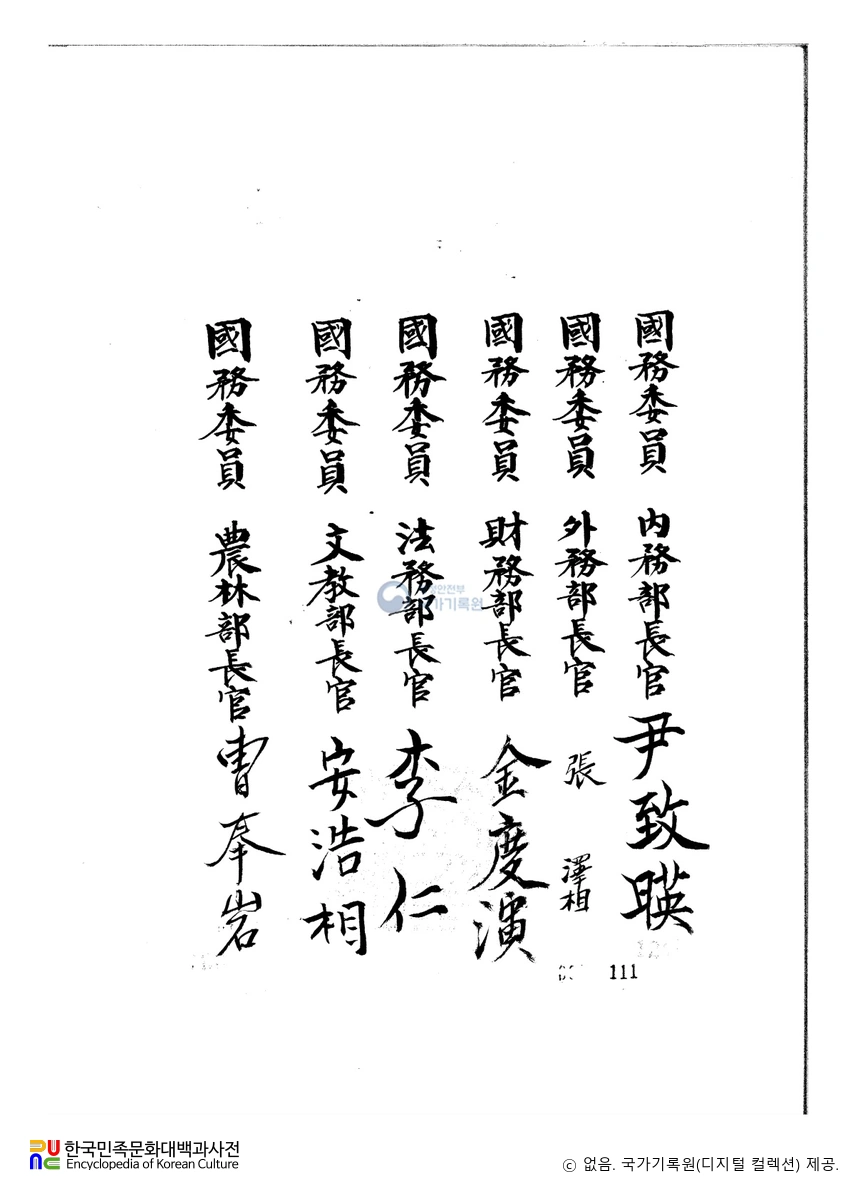 國務委員 內務部長官 尹致暎
國務委員 外務部長官 張澤相
國務委員 財務部長官 金度演
國務委員 法務部長官 李仁
國務委員 文教部長官 安浩相
國務委員 農林部長官 曺奉岩
국가기록원
111
한국민족문화대백과사전
Encyclopedia of Korean Culture
ⓒ 없음. 국가기록원(디지털 컬렉션) 제공.